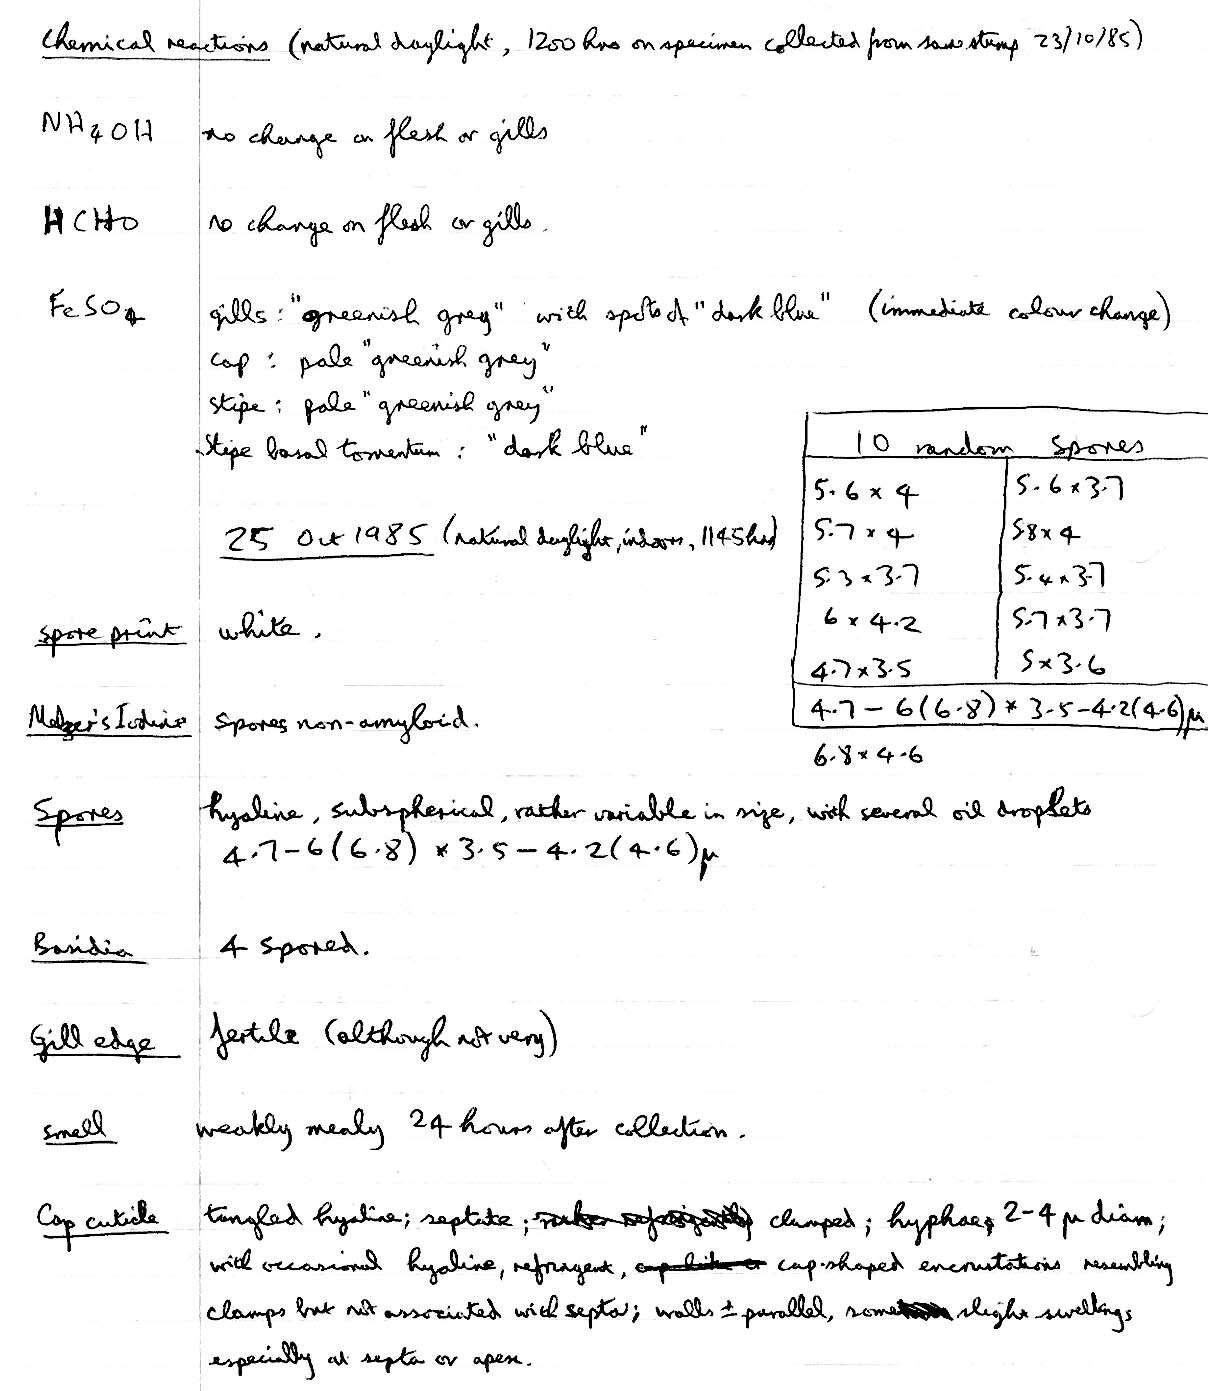 Chemical reactions (natural daylight, 1200 hrs on specimen collected from same stump 23/10/85)
NH4OH no change on flesh or gills
HCHO no change on flesh or gills.
FeSO4 gills: "greenish grey" with spots of "dark blue" (immediate colour change)
cap: pale "greenish grey"
stipe: pale "greenish grey"
Stipe basal tomentum: "dark blue"
25 Oct 1985 (natural daylight, indoors, 1145 hrs)
10 random spores
5.6 × 4 5.6 × 3.7
5.7 × 4 5.8 × 4
5.3 × 3.7 5.4 × 3.7
6 × 4.2 5.7 × 3.7
4.7 × 3.5 5 × 3.6
4.7 – 6 (6.8) × 3.5 – 4.2 (4.6) µ
6.8 × 4.6
Spore print white.
Melzer's Iodine Spores non-amyloid.
Spores hyaline, subspherical, rather variable in size, with several oil droplets
4.7 – 6 (6.8) × 3.5 – 4.2 (4.6) µ
Basidia 4 spored.
Gill edge fertile (although not very)
Smell weakly mealy 24 hours after collection.
Cap cuticle tangled hyaline; septate; clamped; hyphae, 2-4 µ diam;
with occasional hyaline, refringent, cap-shaped encrustations resembling
clamps but not associated with septa; walls ± parallel, some slight swellings
especially at septa or apex.